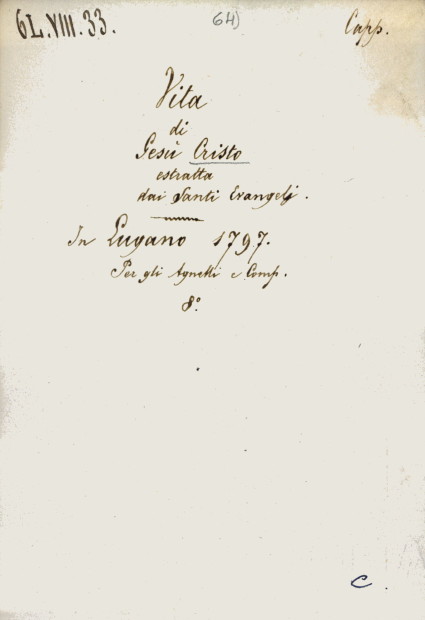 6L.VIII.33.
64)
Capp.
Vita
di
Gesù Cristo
estratta
dai Santi Evangelj.
In Lugano 1797.
Per gli Agnelli e Comp.
8°.
C.